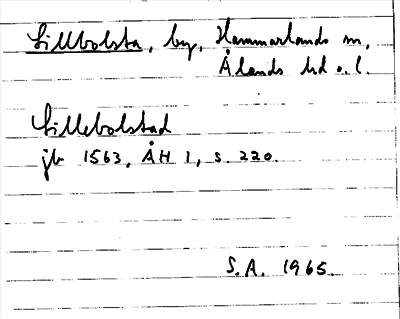 Lillbolsta, by, Hammarlands sn,
Ålands hd o. l.
Lillebolstad
jb 1563, ÅH 1, s. 220.
S.A. 1965.